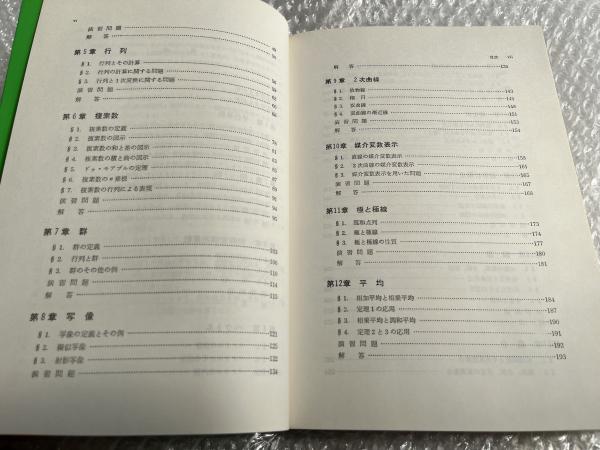 vi
演習問題
解答
第5章 行列
§1. 行列とその計算
§2. 行列の計算に関する問題
§3. 行列と1次変換に関する問題
演習問題
解答
第6章 複素数
§1. 複素数の定義
§2. 複素数の図示
§3. 複素数の和と差の図示
§4. 複素数の積と商の図示
§5. ドゥ・モアブルの定理
§6. 複素数のn乗根
§7. 複素数の行列による表現
演習問題
解答
第7章 群
§1. 群の定義 103
§2. 行列と群
§3. 群のその他の例 110
演習問題
解答 115
第8章 写像
§1. 写像の定義とその例 121
§2. 擬似写像 125
§3. 射影写像
演習問題 134
目次 vii
解答
第9章 2次曲線
§1. 放物線 143
§2. 楕円
§3. 双曲線 151
§4. 双曲線の漸近線
演習問題
解答 154
第10章 媒介変数表示
§1. 直線の媒介変数表示 158
§2. 2次曲線の媒介変数表示 161
§3. 媒介変数表示を用いた問題 165
演習問題 167
解答 168
第11章 極と極線
§1. 調和点列 173
§2. 極と極線 174
§3. 極と極線の性質 177
演習問題 180
解答 181
第12章 平均
§1. 相加平均と相乗平均 184
§2. 定理1の応用 187
§3. 相乗平均と調和平均 190
§4. 定理2と3の応用 191
演習問題 192
解答 193